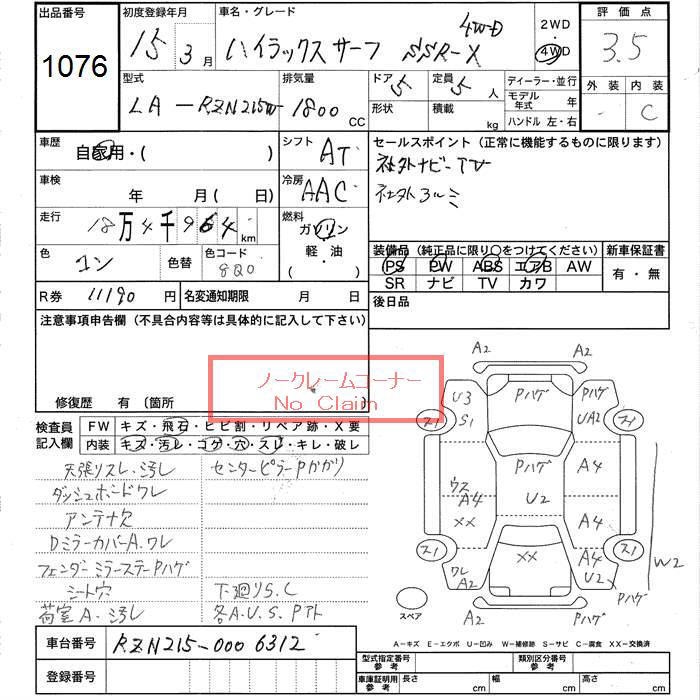 出品番号 初度登録年月 車名・グレード 評価点
1076 15 3月 ハイラックスサーフ SSR-X 4W-D 2WD 4WD 3.5
型式 排気量 ドア 5 定員 5人 ディーラー・並行 外装 内装
LA-RZN215W 1800 CC 形状 積載 kg モデル年式 年 - C
ハンドル 左・右
車歴 自家用・( ) シフト AT セールスポイント(正常に機能するものに限ります)
社外ナビ-TV
車検 年 月( 日) 冷房 AAC 社外アルミ
走行 18万4千964km 燃料 ガソリン
軽・油
( )
色 コン 色替 色コード 8Q0 装備品(純正品に限り○をつけてください) 新車保証書
PS PW ABS エアB AW 有・無
SR ナビ TV カワ
R券 11190円 名変通知期限 月 日 後日品
注意事項申告欄(不具合内容等は具体的に記入して下さい)
ノークレームコーナー
No Claim
修復歴 有 〔箇所
検査員記入欄 FW キズ・飛石・ヒビ割・リペア跡・X要
内装 キズ・汚レ・コゲ・穴・スレ・キレ・破レ
天張リスレ、汚レ センターピラーPカガリ
ダッシュボードワレ
アンテナ欠
DミラーカバーA、ワレ
フェンダーミラーステーPハゲ
シート穴 下廻りS.C
荷室A、汚レ 各A.U.S.Pアト
A2 A2
U3 S1 Pハゲ Pハゲ UA2
ス1 ス1
Pハゲ A4
ウス A4 U2
XX A4
ス1 XX ス1
ワレ A2 A4 U2 W2
A2 A2 Pハゲ Pハゲ
スペア
A-キズ E-エクボ U-凹み W-補修跡 S-サビ C-腐食 XX-交換済
車台番号 RZN215-0006312
型式指定番号 参考 類別区分番号 参考
登録番号 車庫証明用 参考 長さ cm 幅 cm 高さ cm